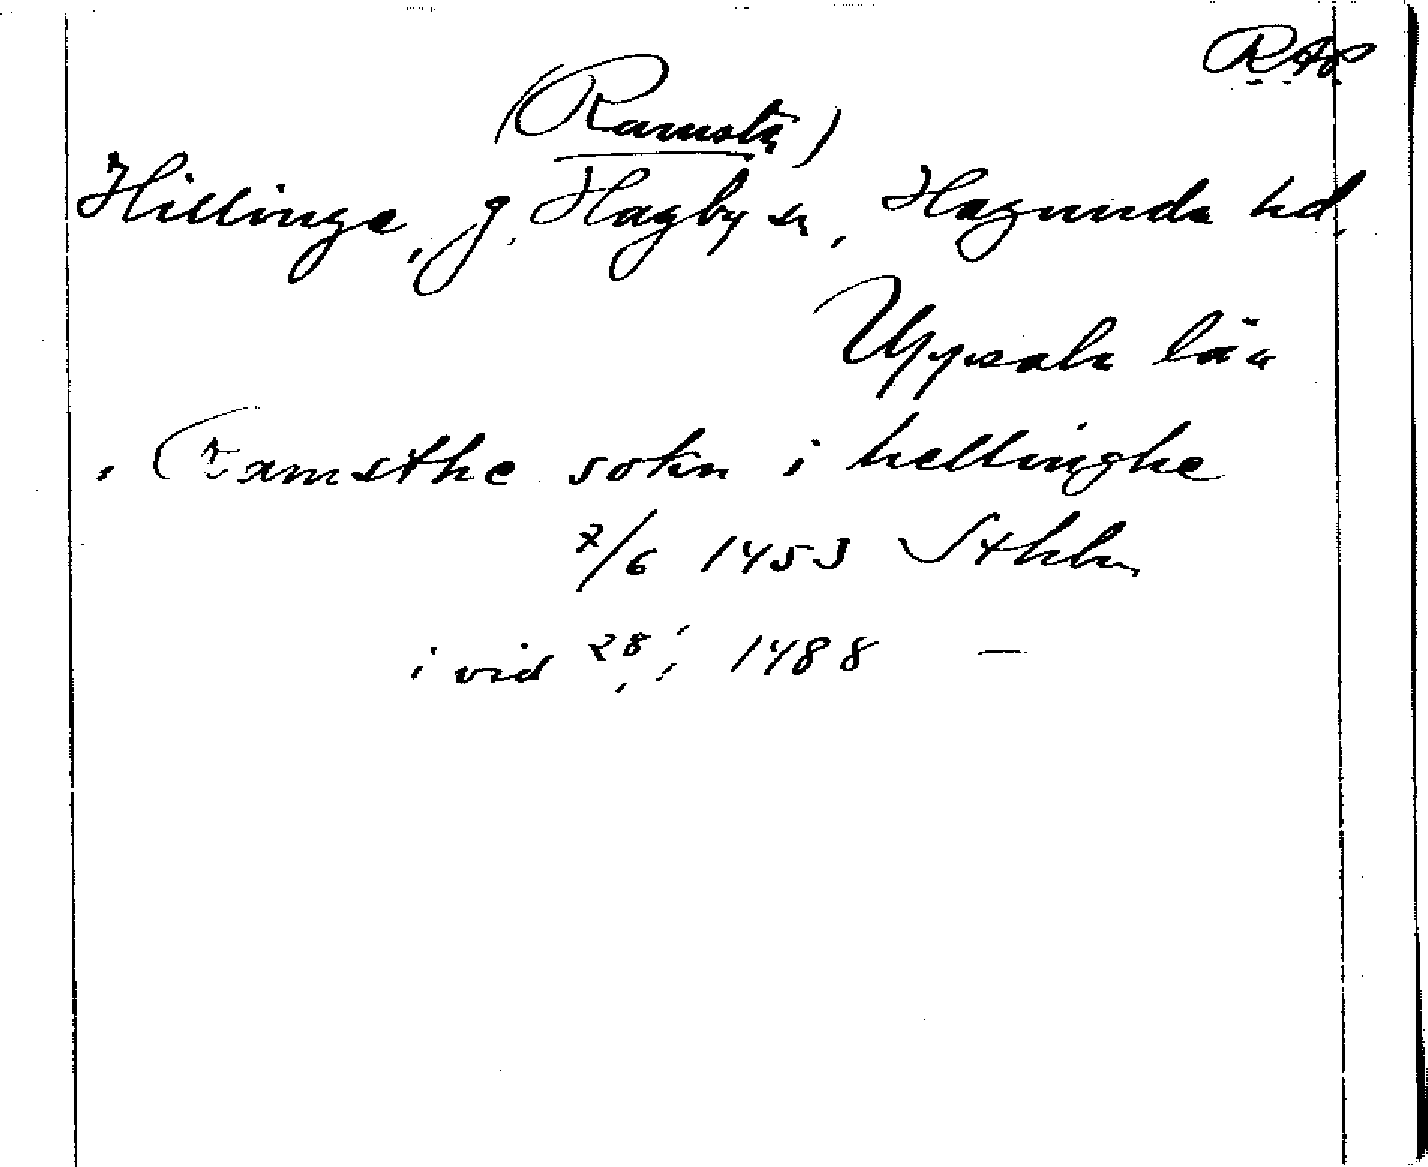 RAP
(Ramsta)
Hillinge, g. Hagby sn, Hagunda hd,
Uppsala län
i Ramsthe sokn i hellinghe
7/6 1453 Sthlm
i vid 28/1 1488 —